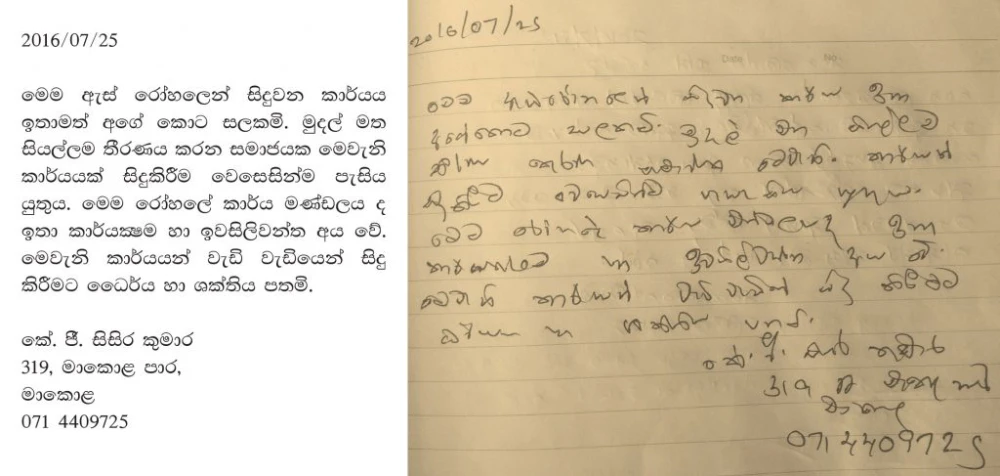 2016/07/25
මෙම ඇස් රෝහලෙන් සිදුවන කාර්යය
ඉතාමත් අගේ කොට සලකමි. මුදල් මත
සියල්ලම තීරණය කරන සමාජයක මෙවැනි
කාර්යයක් සිදුකිරීම වෙසෙසින්ම පැසිය
යුතුය. මෙම රෝහලේ කාර්ය මණ්ඩලය ද
ඉතා කාර්යක්‍ෂම හා ඉවසිලිවන්ත අය වේ.
මෙවැනි කාර්යයන් වැඩි වැඩියෙන් සිදු
කිරීමට ධෛර්ය හා ශක්තිය පතමි.
කේ. පී. සිසිර කුමාර
319, මාකොළ පාර,
මාකොළ
071 4409725
2016/07/25
මෙම ඇස් රෝහලෙන් සිදුවන කාර්ය ඉතා
අගේකොට සලකමි. මුදල් මත සියල්ලම
තීරණය කරන සමාජයක මෙවැනි කාර්යයන්
සිදුකිරීම වෙසෙසින්ම
මෙම රෝහලේ කාර්ය මණ්ඩලයද ඉතා
කාර්යක්ෂම හා ඉවසිලිවන්ත අය වේ.
මෙවැනි කාර්යයන් වැඩි වැඩියෙන් සිදු කිරීමට
ධෛර්යය හා ශක්තිය පතමි.
කේ. පී. සිසිර කුමාර
319 මාකොළ පාර
මාකොළ
0714409725